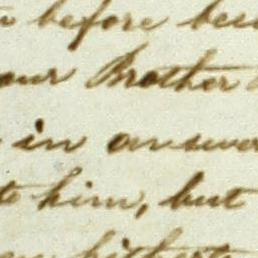 before
our Brother
in answer
to him, but
hitherto